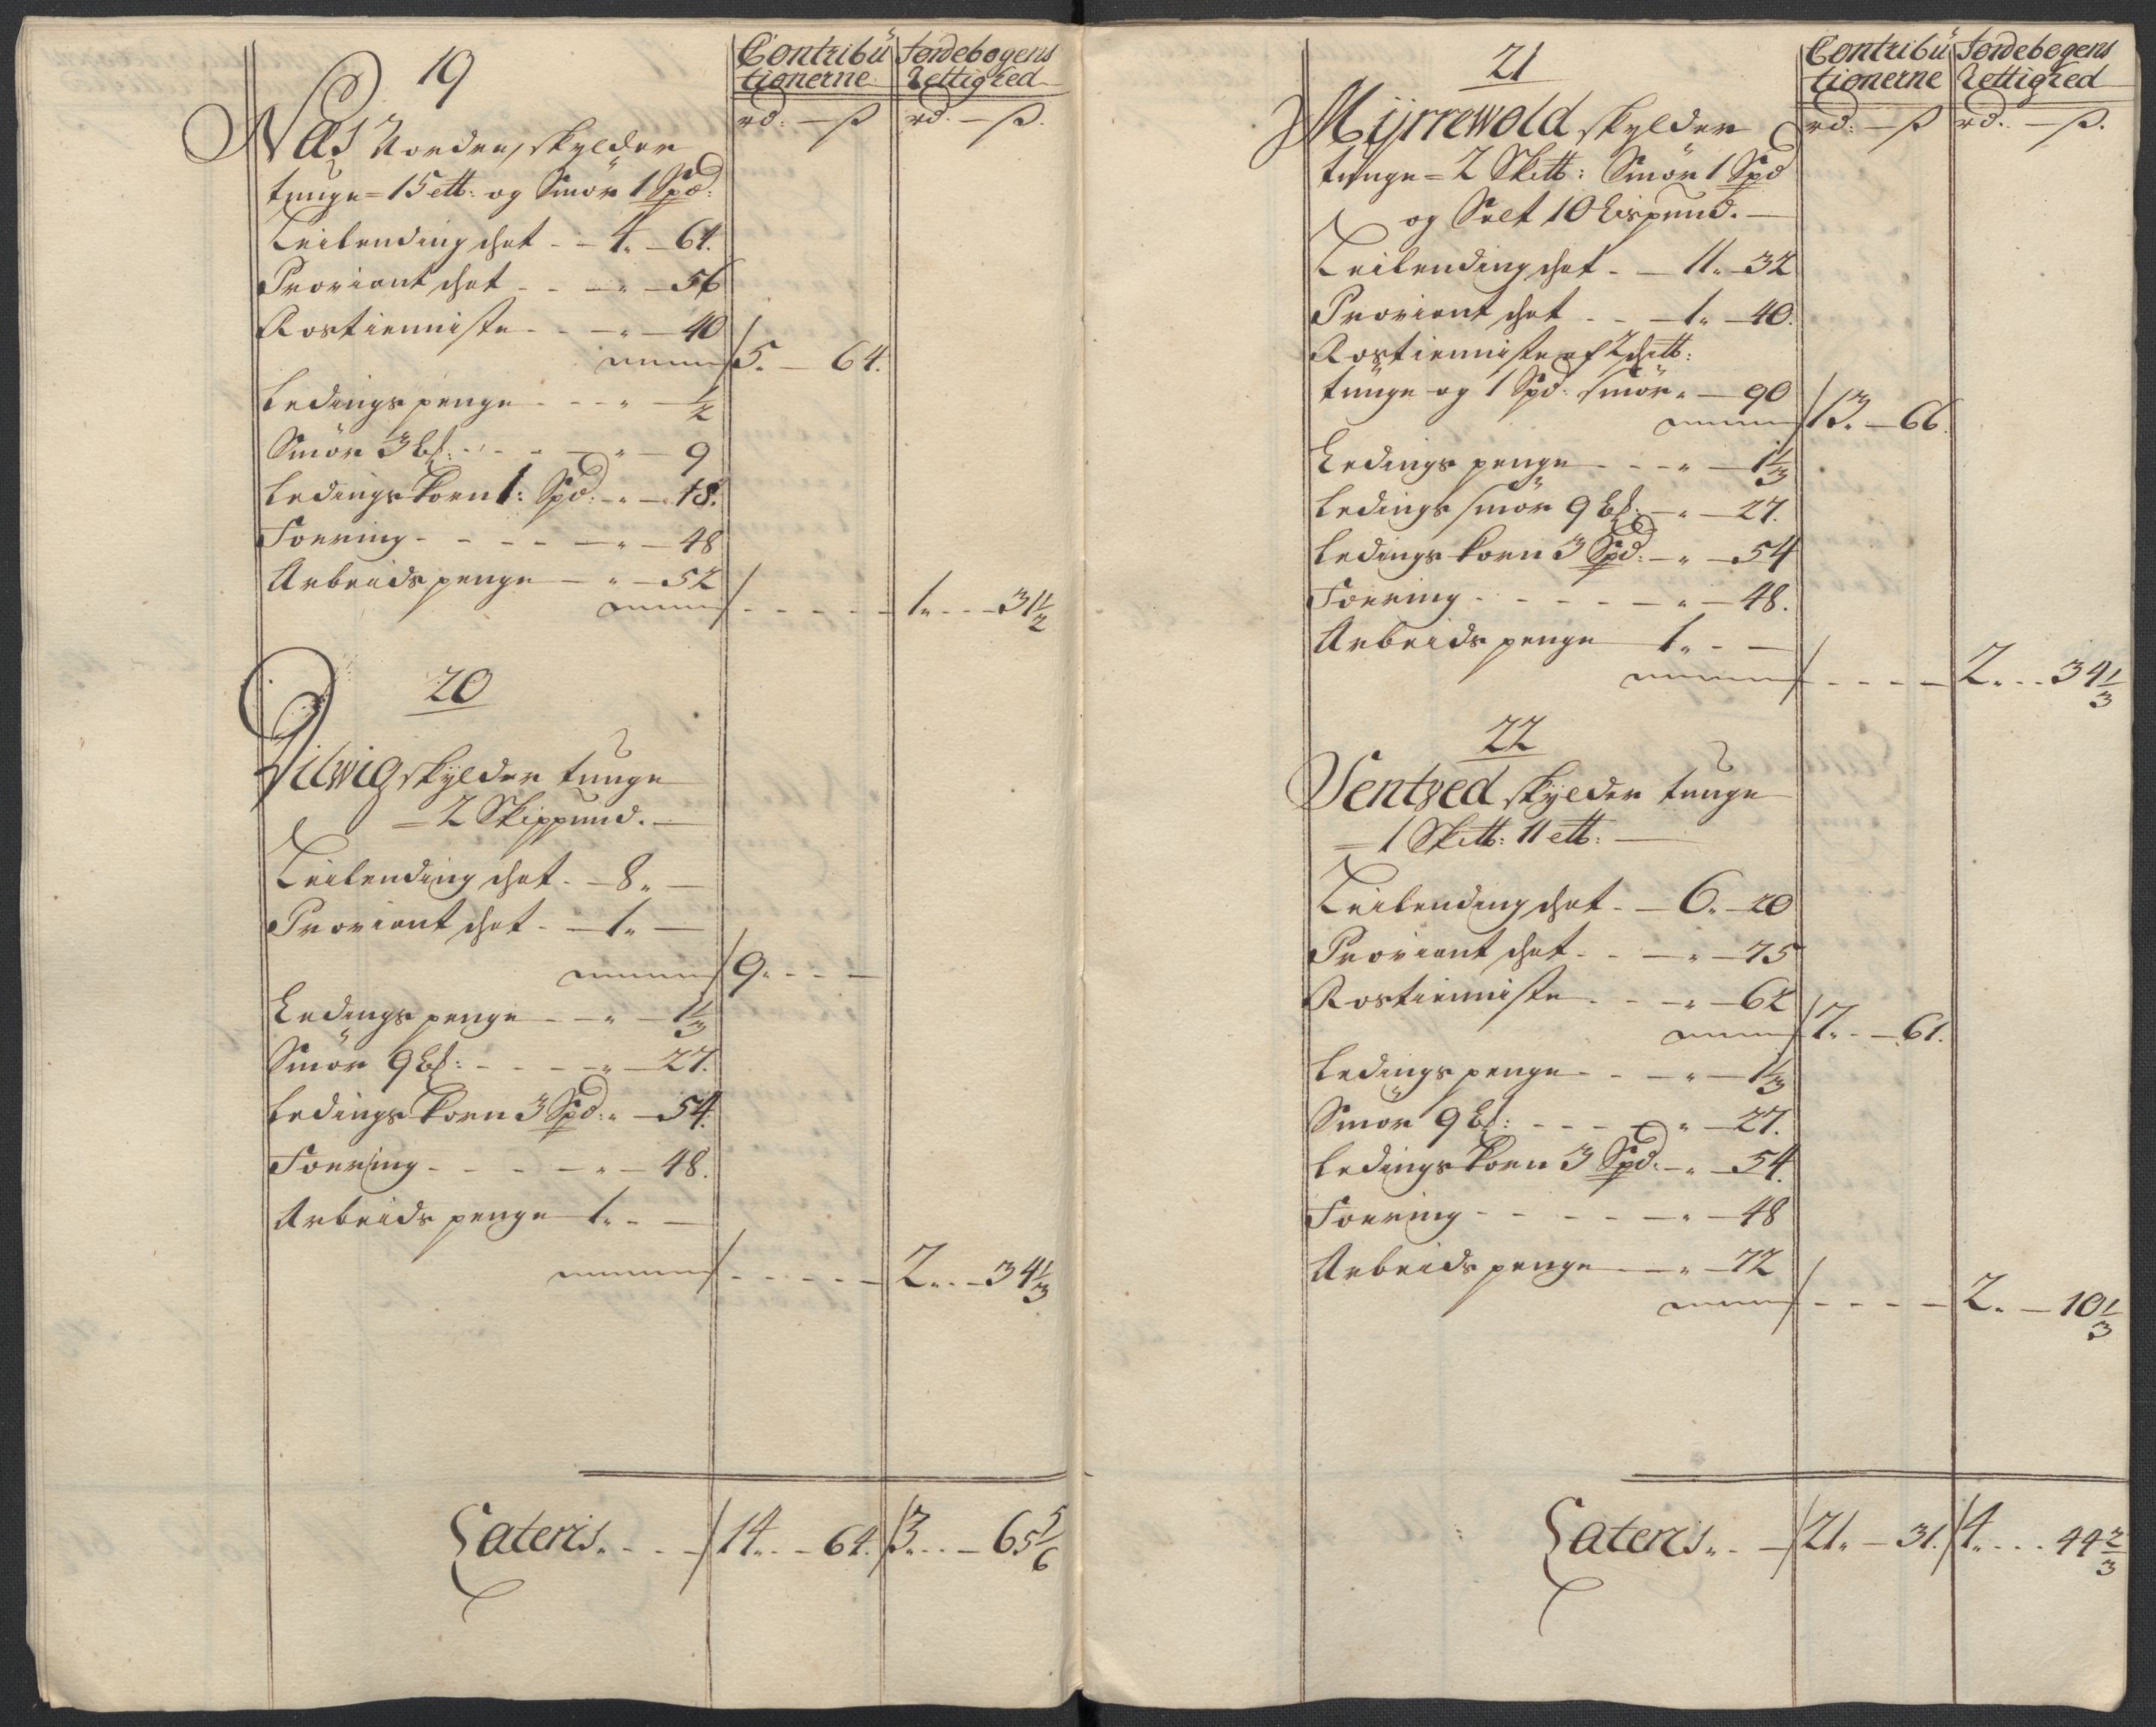 19
Contribü Jordebogens
tionerne Rettighed
rd: — ß rd. — ß.
Næs Nordre, skylder
tunge = 15 ett: og Smör 1 Spd:
Leilending shat - - 4. — 64.
Proviant shat - - — „ — 56
Rostienniste - - — „ — 40
5. — 64.
Ledings penge - - - „ — 1/2
Smör 3 bl: - - - — „ — 9
Ledings Korn 1: Spd: „ — 18.
Foering - - - - — „ — 48
Arbeids penge — „ — 52
- - - - - 1. - - - 31 1/2
20
skylder tunge
= 2 Skippund. —
Leilending shat. — 8. —
Proviant shat - — 1. —
9. - - —
Ledings penge — — „ — 1 1/3
Smör 9 bl: - - - - „ — 27.
Ledings Korn 3 Spd: „ — 54.
Foering - - - — „ — 48.
Arbeids penge — 1. - —
- - - - - 2. - - 34 1/3
Lateris. - - - 14. - - 64. 3. - - - 65 5/6
21
Contribü Jordebogens
tionerne Rettighed
rd: — ß rd. — ß.
Myrrewold skylder
tunge = 2 Sktt: Smör 1 Spd
og Selt 10 Lispund. —
Leilending shat - — 11. — 32
Proviant shat - - — 1. — 40.
Rostienniste af 2 shtt:
tunge og 1 Spd: smör „ — 90
13. — 66.
Ledings penge - - - „ — 1 1/3
Ledings smör 9 bl: — „ — 27.
Ledings Korn 3 Spd: — „ — 54
Foering - - - - — „ — 48.
Arbeids penge 1. - —
- - - - 2. - - 34 1/3
22
Sentzed skylder tunge
= 1 Sktt: 11 ett: —
Leilending shat - — 6. — 20
Proviant shat - - — „ — 75
Rostienniste - - — „ — 62
7. - — 61.
Ledings penge - - — „ — 1 1/3
Smör 9 bl: - - - — „ — 27.
Ledings Korn 3 Spd: — „ — 54.
Foering - - - - — „ — 48
Arbeids penge — — „ — 72
- - - - 2. — 10 1/3
Lateris. - — 21. — 31. 4. - - - 44 2/3